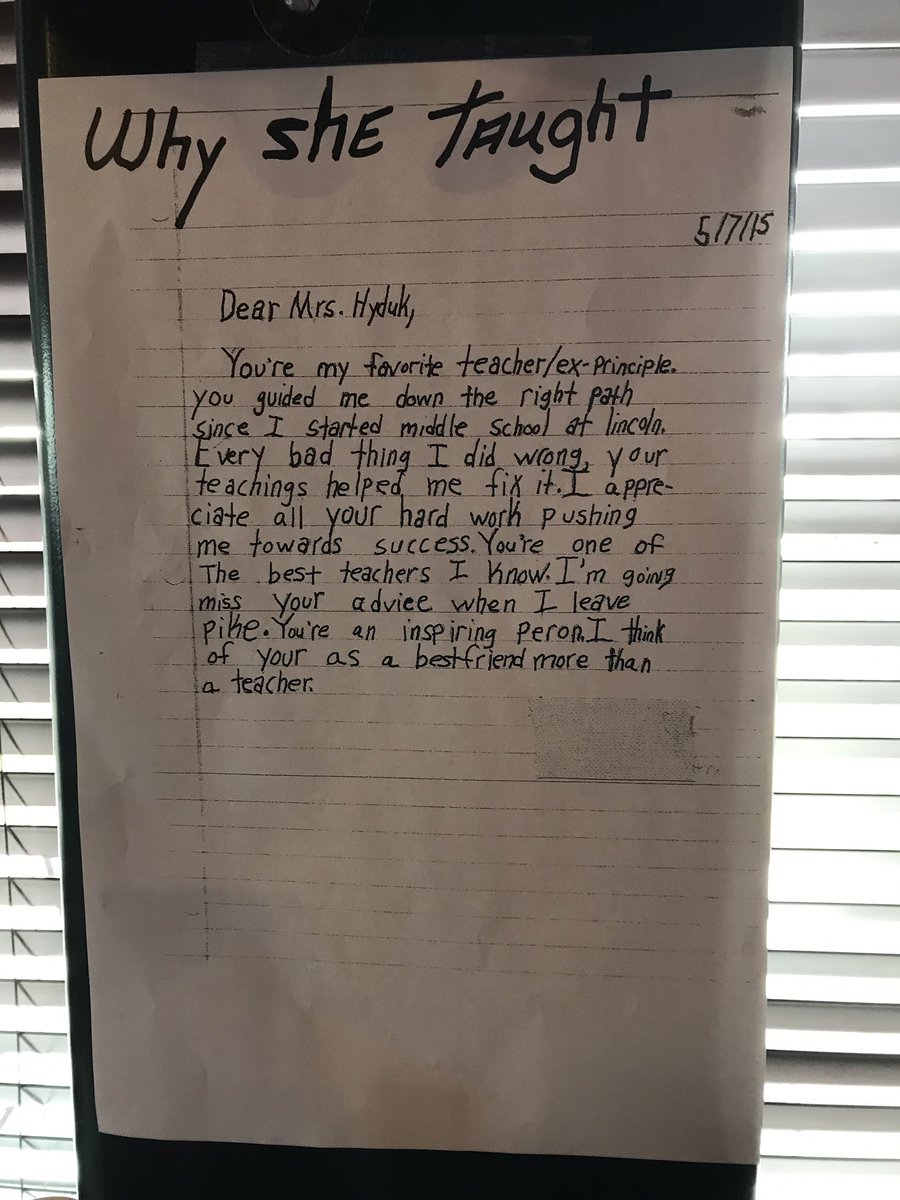 Why shE TAught
5/7/15
Dear Mrs. Hyduk,
You're my favorite teacher/ex-Principle.
you guided me down the right path
since I started middle school at lincoln.
Every bad thing I did wrong, your
teachings helped me fix it. I appre-
ciate all your hard work pushing
me towards success. You're one of
The best teachers I know. I'm going
miss your advice when I leave
pike. You're an inspiring peron. I think
of your as a bestfriend more than
a teacher.